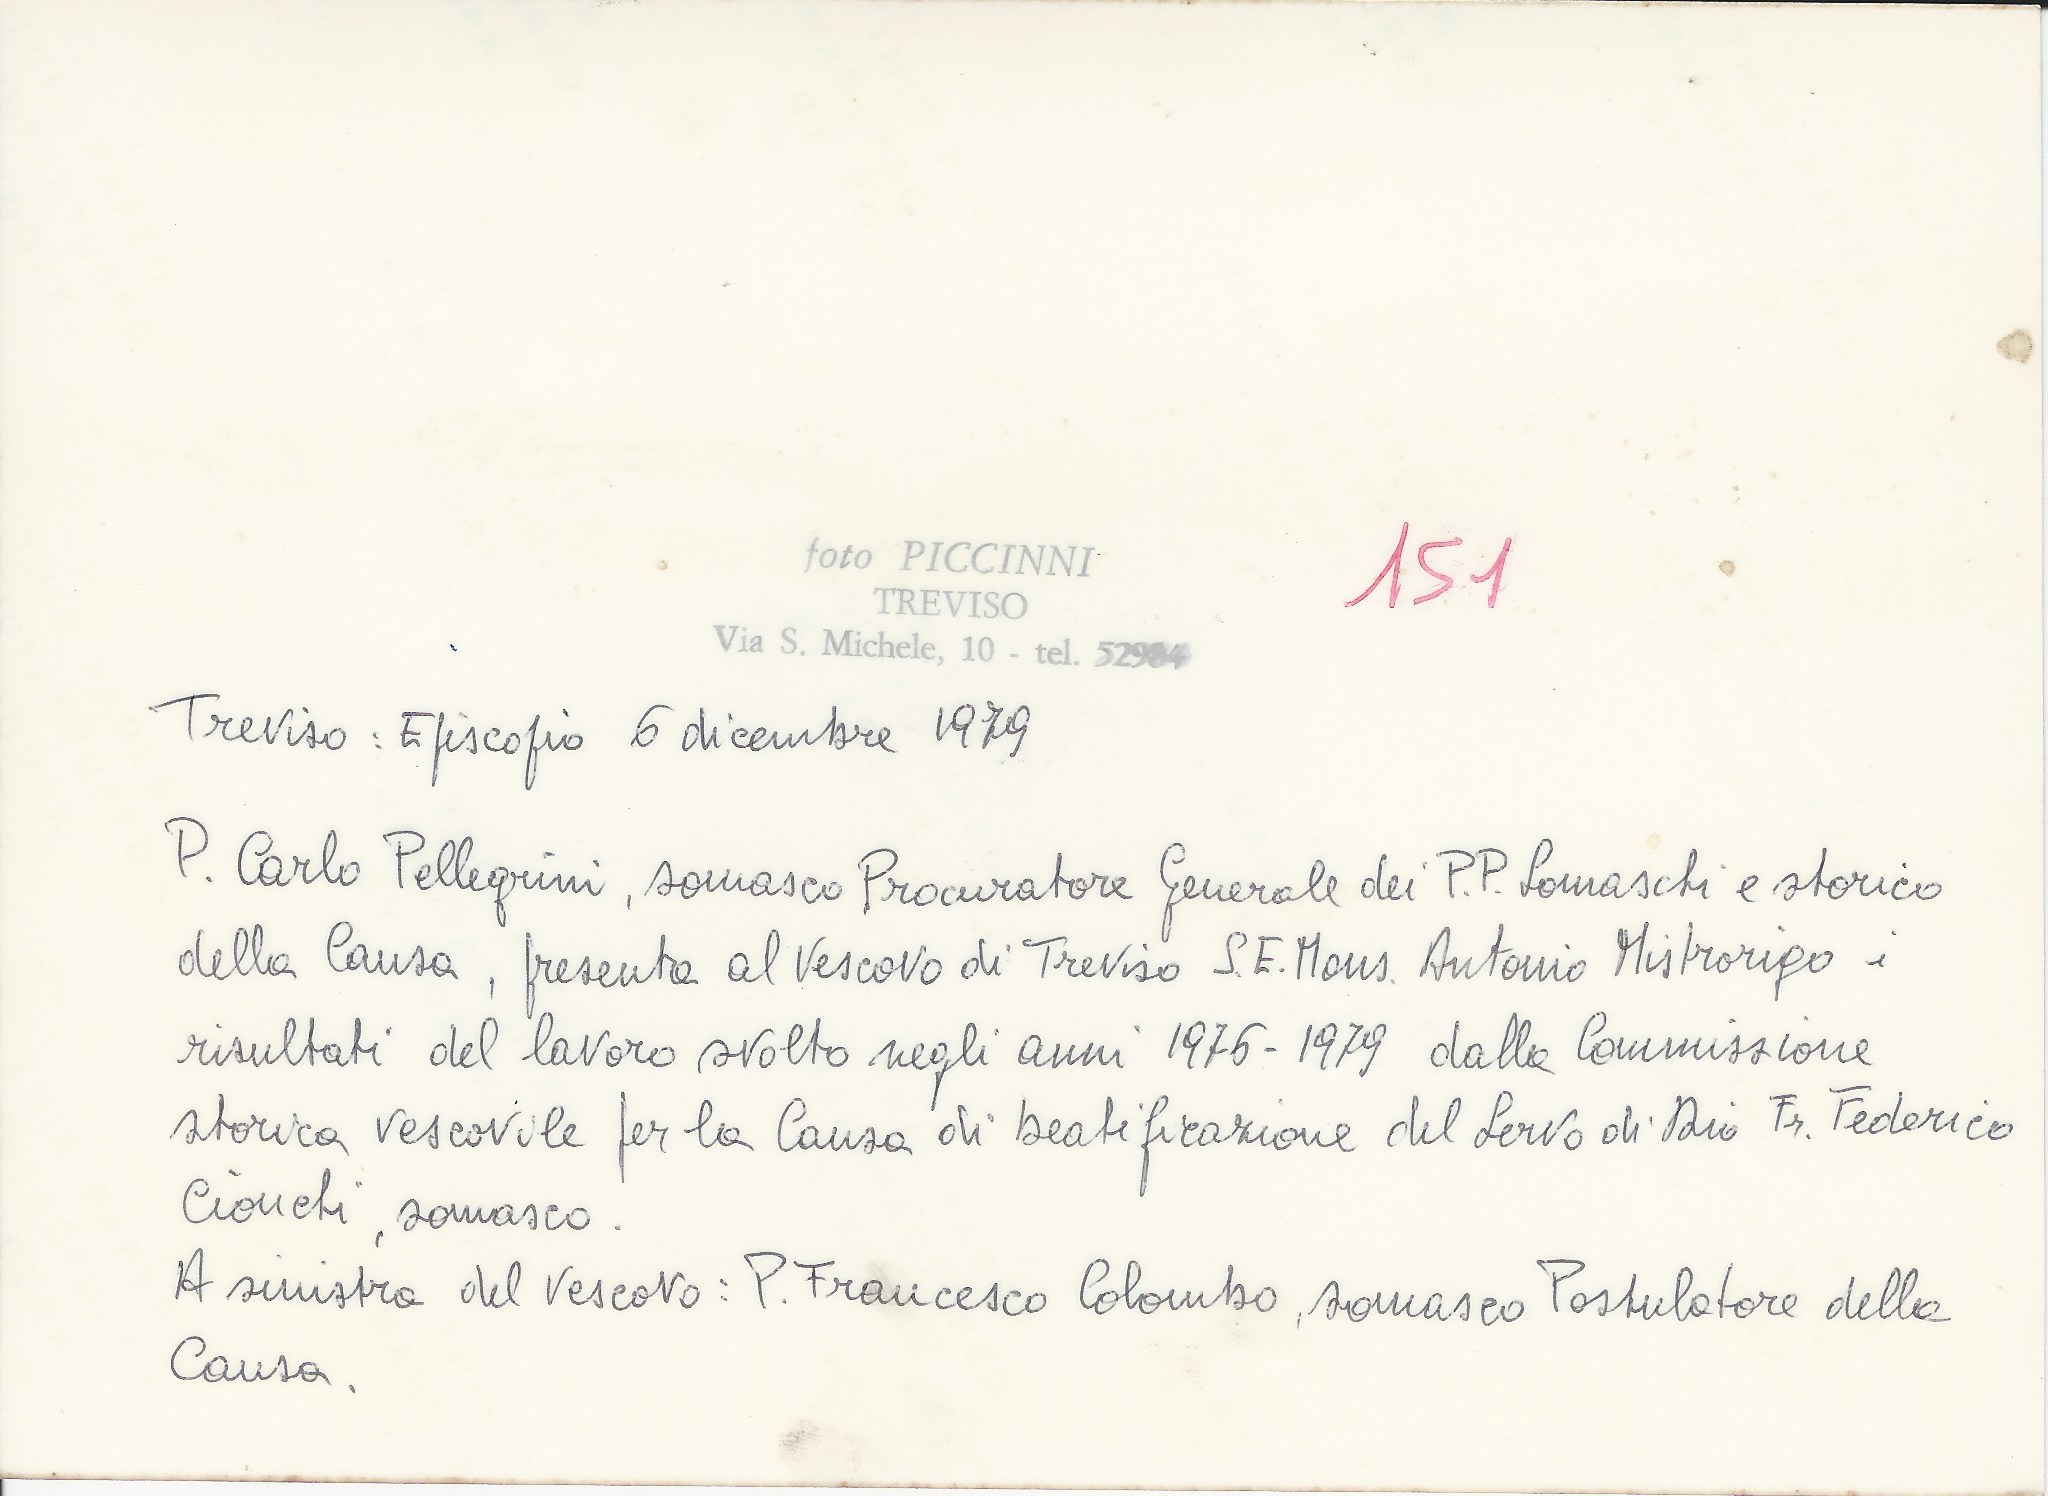 foto PICCINNI
151
TREVISO
Via S. Michele, 10 - tel. 52984
Treviso : Episcopio 6 dicembre 1979
P. Carlo Pellegrini, somasco Procuratore Generale dei P.P. Somaschi e storico
della Causa, presenta al Vescovo di Treviso S.E. Mons. Antonio Mistrorigo i
risultati del lavoro svolto negli anni 1976-1979 dalla Commissione
storica vescovile per la Causa di beatificazione del Servo di Dio Fr. Federico
Cionchi, somasco.
A sinistra del Vescovo : P. Francesco Colombo, somasco Postulatore della
Causa.